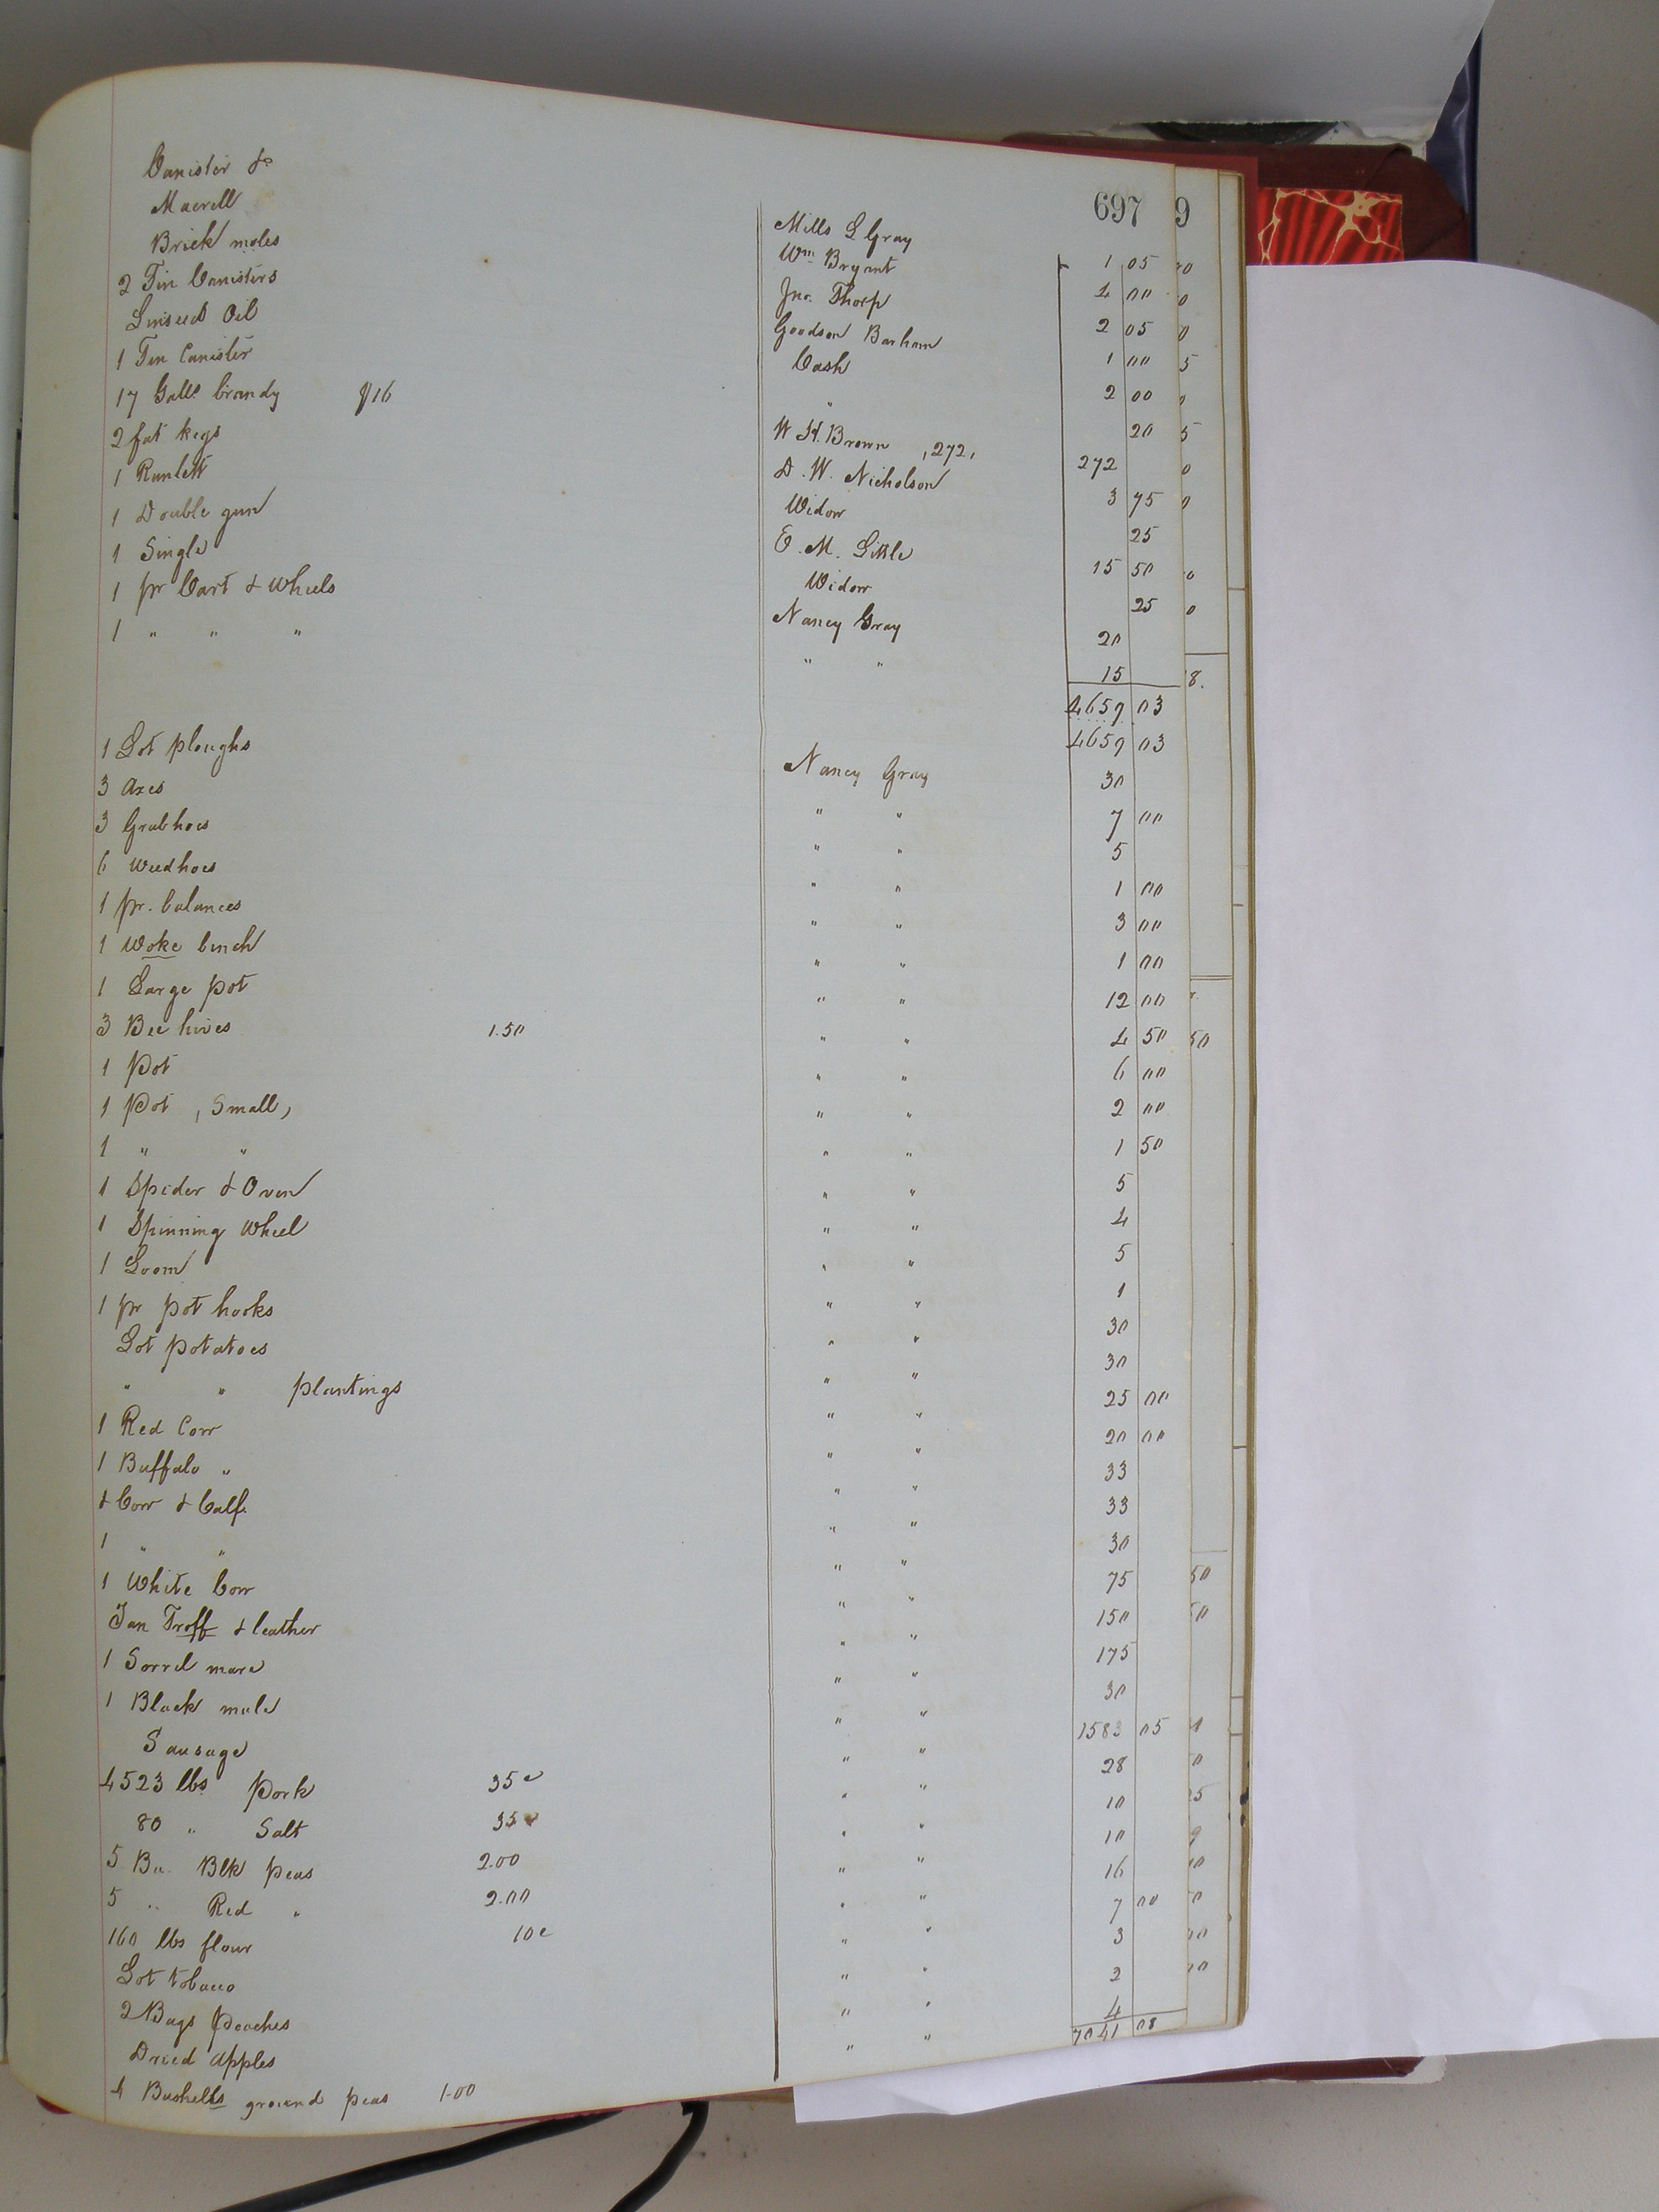 697 9
Canister &c Mills L Gray 1 05
Macrell Wm Bryant 4 00
Brick moles Jno. Thorp 2 05
2 Tin Canisters Goodson Barham 1 00
Linseed Oil Cash 2 00
1 Tin Canister " 20
17 Galls. brandy $16 W. H. Brown ,272, 272
2 fat kegs D. W. Nicholson 3 75
1 Runlett Widow 25
1 Double gun E. M. Little 15 50
1 Single Widow 25
1 pr Cart & Wheels Nancy Gray 20
1 " " " " " 15
4659 03
4659 03
1 Lot ploughs Nancy Gray 30
3 Axes " " 7 00
3 Grubhoes " " 5
6 Weedhoes " " 1 00
1 pr. balances " " 3 00
1 Woke bench " " 1 00
1 Large pot " " 12 00
3 Bee hives 1.50 " " 4 50
1 Pot " " 6 00
1 Pot , Small, " " 2 00
1 " " " " 1 50
1 Spider & Oven " " 5
1 Spinning Wheel " " 4
1 Loom " " 5
1 pr pot hooks " " 1
Lot potatoes " " 30
" " plantings " " 30
1 Red Cow " " 25 00
1 Buffalo " " " 20 00
& Cow & Calf. " " 33
1 " " " " 33
1 White Cow " " 30
Tan Troff & leather " " 75
1 Sorrel mare " " 150
1 Black mule " " 175
Sausage " " 30
4523 lbs Pork 35c " " 1583 05
80 " Salt 35c " " 28
5 Bu. Blk peas 2.00 " " 10
5 " Red " 2.00 " " 10
160 lbs flour 10c " " 16
Lot tobacco " " 7 00
2 Bags Peaches " " 3
Dried apples " " 2
4 Bushells ground peas 1.00 " " 4
7041 08